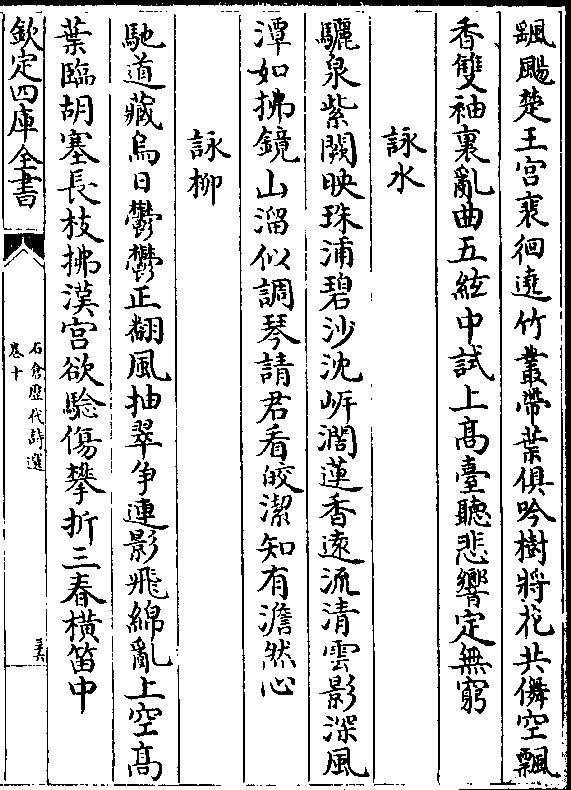 飄颺楚王宫裵徊遶竹叢帶葉俱吟樹將花共儛空飄
香雙袖裏亂曲五絃中試上髙臺聽悲響定無窮
詠水
驪泉紫闕映珠浦碧沙沈岍濶蓮香逺流清雲影深風
潭如拂鏡山溜似調琴請君看皎潔知有澹然心
詠柳
馳道藏烏日鬱鬱正翻風抽翠争連影飛綿亂上空髙
葉臨胡塞長枝拂漢宫欲驗傷攀折三春横笛中
欽定四庫全書
石倉歴代詩選
卷十